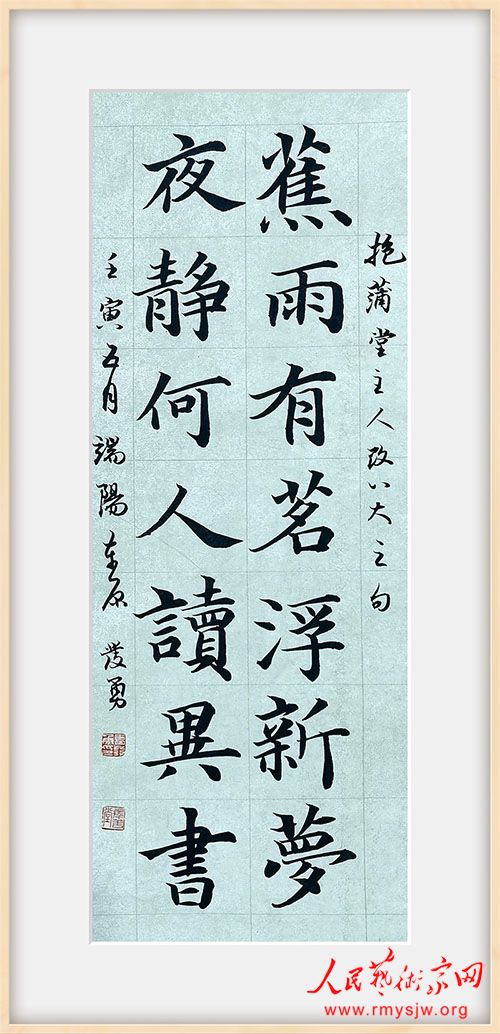 抱蒲堂主人改八大之句
蕉雨有茗浮新夢
夜静何人讀異書
壬寅五月端陽東原發勇
人民藝術家网
www.rmysjw.org